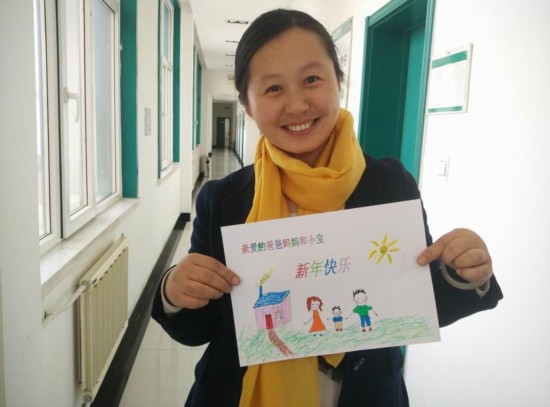 亲爱的爸爸妈妈和小宝
新年快乐